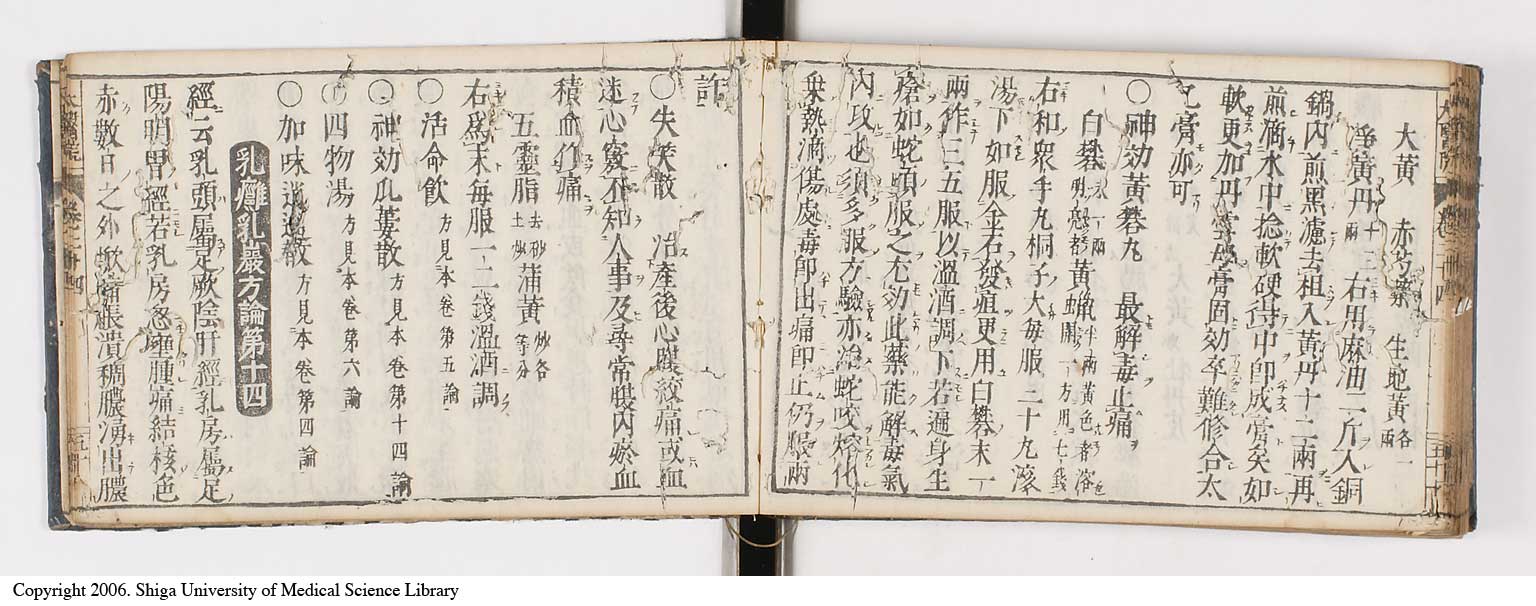 大黄 赤芍藥 生地黄各一兩
淨黄丹十三兩 右用麻油二斤入銅
鍋内煎黒濾去柤入黄丹十二兩再
煎滴水中捻軟硬得中即成膏矣如
軟更加丹 膏固効卒難修合太
乙膏亦可
〇神効黄礬丸 最解毒止痛
白礬明亮者一兩黄蝋半兩黄色者溶開一方用七錢
右和衆手丸桐子大毎服三十丸滚
湯下如服金石發疽更用白礬末一
兩作三五服以温酒調下若遍身生
瘡如蛇頭服之尤効此藥能解毒氣
内攻也須多服方驗亦治蛇咬熔化
乗熱滴傷處毒即出痛即止仍服兩
許
〇失笑散 治産後心腹絞痛或血
迷心竅不知人事及尋常腹内瘀血
積血作痛
五靈脂去砂土炒蒲黄炒各等分
右爲末毎服一二錢温酒調
〇活命飲方見本卷第五論
〇神効瓜蔞散方見本卷第十四論
〇四物湯方見本卷第六論
〇加味逍遥散方見本卷第四論
乳癰乳巖方論第十四
經云乳頭屬足厥陰肝經乳房屬足
陽明胃經若乳房忽壅腫痛結核色
赤數日之外焮痛脹潰稠膿湧出膿
Copyright 2006. Shiga University of Medical Science Library